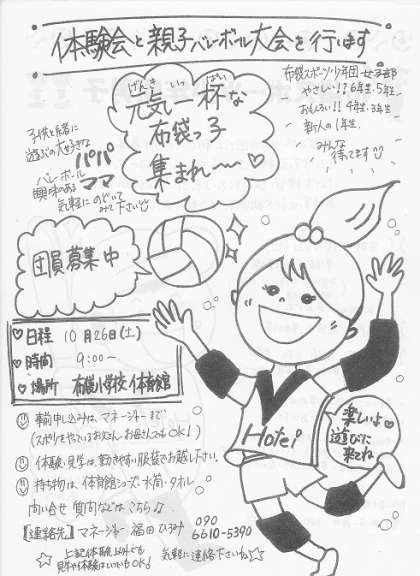 体験会と親子バレーボール大会を行います
布袋スポーツ少年団 女子部
やさしい!! 6年生、5年生
おもしろい!! 4年生、3年生
新人の1年生
みんな
待ってます
げんき いっ ぱい
元気一杯な
布袋っ子
集まれ〜〜♡
子供と一緒に
遊ぶの大好きな
パパ
バレーボール
興味のある ママ
気軽にのぞいて
みて下さい
団員募集中
♡日程 10月26日(土)
♡時間 9:00〜
♡場所 布袋小学校体育館
楽しいよ♡
遊びに
来てね
Hotei
事前申し込みは、マネージャーまで
(スポ少を見ているお父さん・お母さんでもOK!)
体験・見学は、動きやすい服装でお越し下さい。
持ち物は、体育館シューズ・水筒・タオル
問い合せ 質問などはこちら♪
【連絡先】マネージャー 福田 ひろみ 090
6610-5390
☆ 上記体験以外でも 気軽に連絡下さいね☆
見学や体験はいつでもOK!